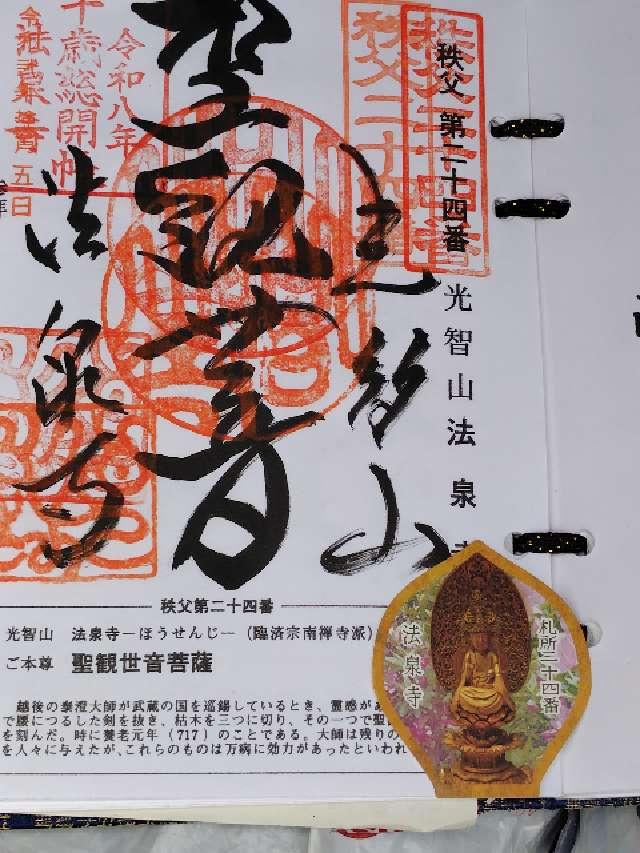 秩父二十四番
秩父二十四番
秩父 第二十四番 光智山法泉
聖観音
光智山
法泉寺
令和八年
午歳総開帳
秩父第二十四番
光智山 法泉寺―ほうせんじ―(臨済宗南禅寺派)
ご本尊 聖観世音菩薩
越後の泰澄大師が武蔵の国を巡錫しているとき、霊感があ
で腰につるした剣を抜き、枯木を三つに切り、その一つで聖
を刻んだ。時に養老元年(717)のことである。大師は残りの
を人々に与えたが、これらのものは万病に効力があったといわれ
札所二十四番
法泉寺